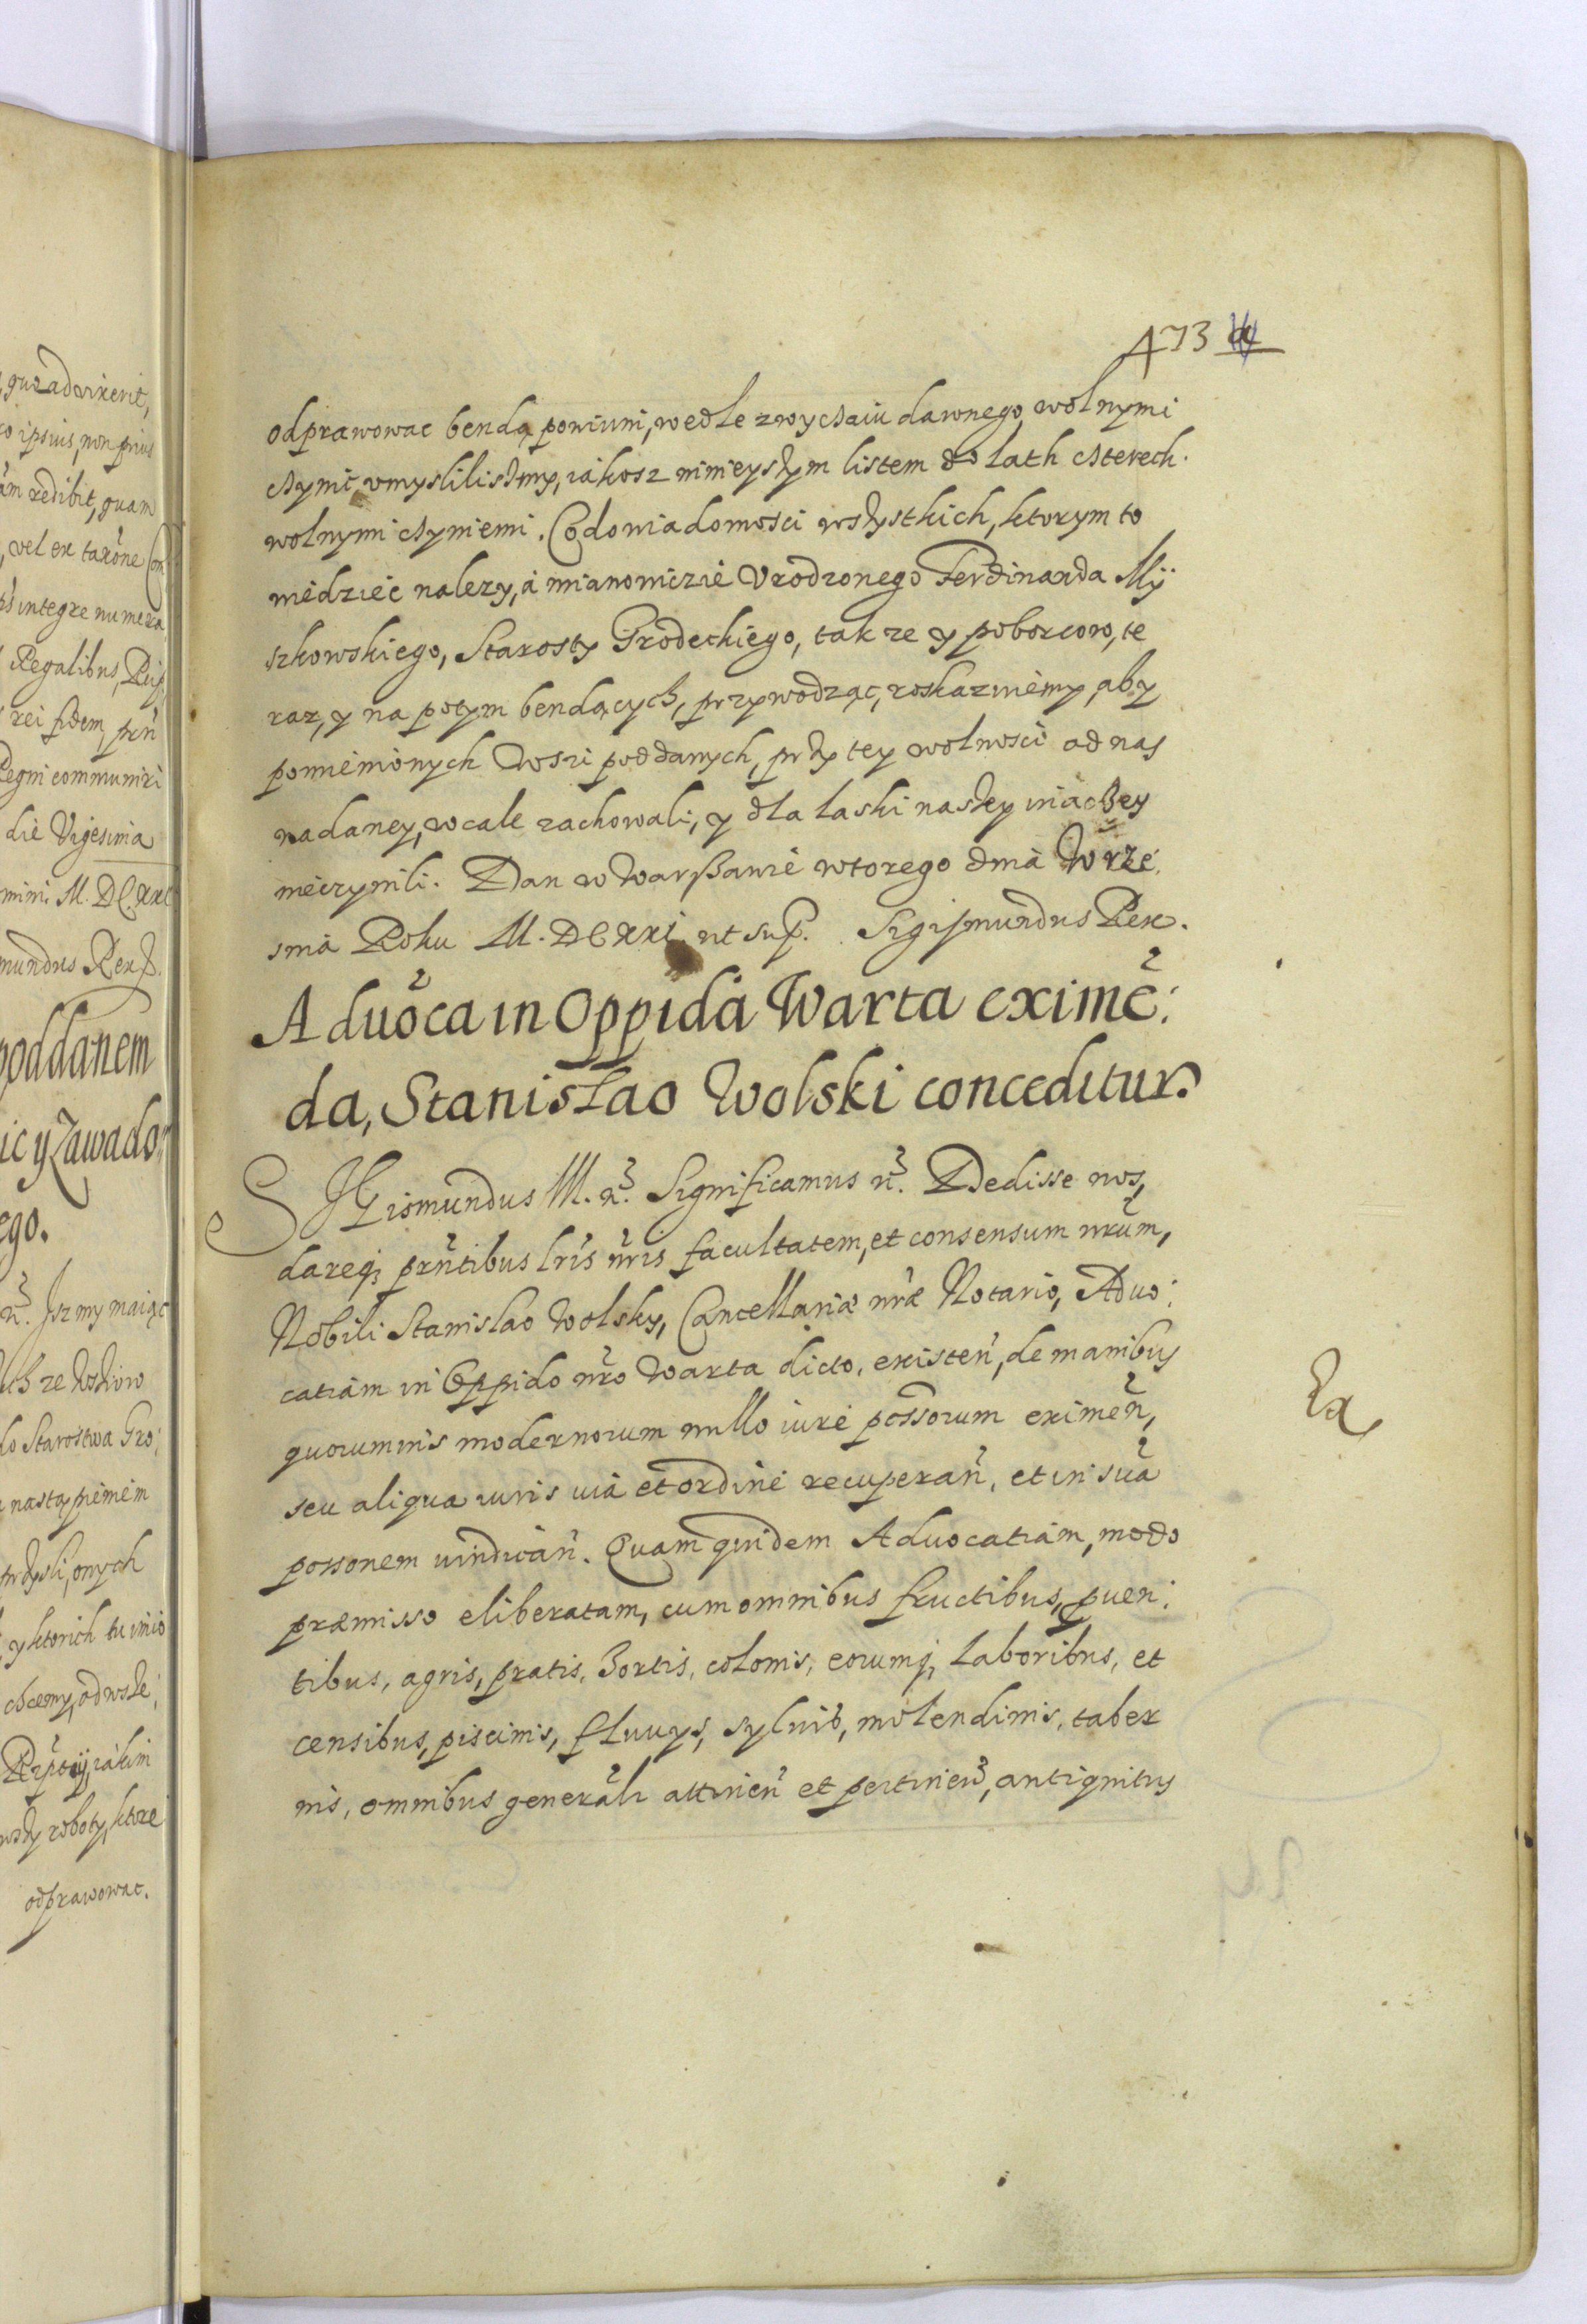 quo advixerit,
co ipsius, non prius
am redibit, quam
, vel ex taxōne Con
integre numera
Regalibus, Rei
rei fidem, pñ
Regni communiri
die Vigesima
mini M.DC.XXI
mundus Rex.
poddanem
ic y Zawado:
ego.
Isz my maiąc
lo Starostwa Gro:
nastąpieniem
onych
y ktorich tu imio
chcemy, od wsze:
iakim
roboty, ktore
odprawowac.
473
odprawowac bendą powinni, wedle zwyczaiu dawnego, wolnymi
czynić umyslilismy, iakosz ninieyszym listem do lath czterech.
wolnymi czyniemi. Co do wiadomosci wszystkich, ktorym to
wiedziec nalezy, a mianowicie Urodzonego Ferdinanda My
szkowskiego, Starosty Grodeckiego, tak ze y poborcow, te
raz, y na potym bendących, przywodząc, roskazuiemy, aby
pomienionych Wsi poddanych, przy tey wolnosci od nas
nadaney, wcale zachowali, y dla laski naszey inaczey
nieczynili. Dan w Warszawie wtorego dnia Wrze:
snia Roku M.DCXXI ut sup. Sigismundus Rex.
Aduōca in Oppida Warta eximē:
da, Stanislao Wolski conceditur.
SIGismundus III. ñ. Significamus ñ. Dedisse nos,
dareq; prñtibus lris ñris facultatem, et consensum nrūm,
Nobili Stanislao Wolsky, Cancellariæ nræ Notario, Aduo:
catiam in Oppido nr̃o Warta dicto, existeñ, de manibus
quorumuis modernorum nullo iure possorum eximeñ,
seu aliqua iuris uia et ordine recuperañ, et in suā
possonem uindicañ. Quam quidem Aduocatiam, modo
præmisso eliberatam, cum omnibus fructibus, puen:
tibus, agris, pratis, hortis, colonis, eorumq; laboribus, et
censibus, piscinis, fluuys, syluis, molendinis, taber
nis, omnibus generāli attineñ et pertineñ, antiquitus
Ex